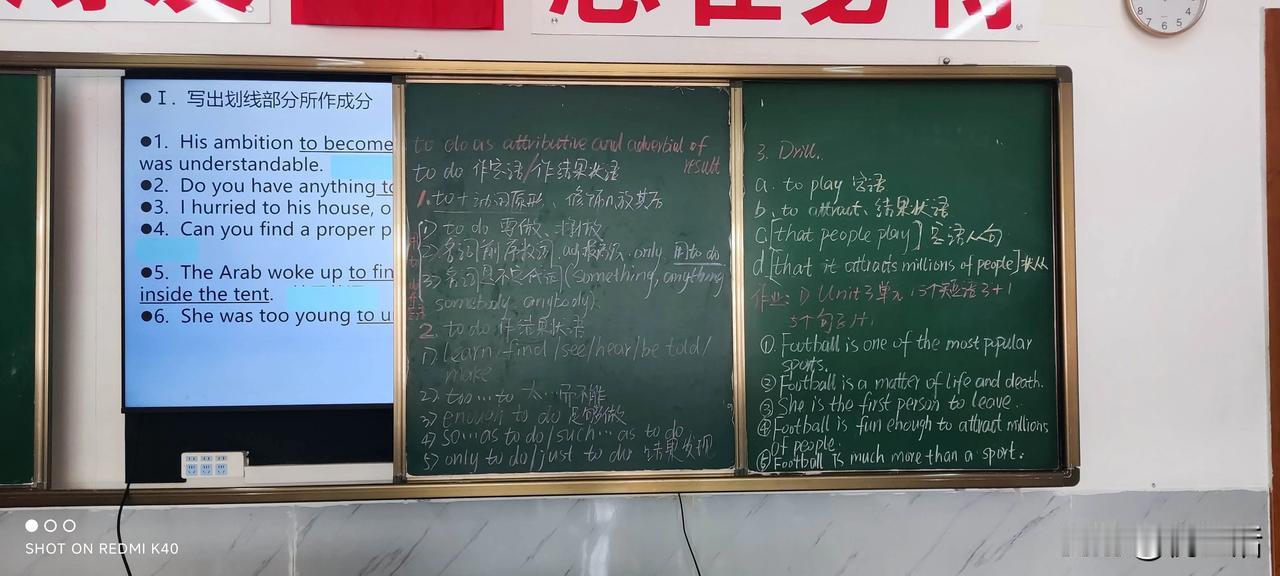 8 7 6 5 4
●Ⅰ. 写出划线部分所作成分
●1. His ambition to become
was understandable.
●2. Do you have anything to
●3. I hurried to his house, o
●4. Can you find a proper p
●5. The Arab woke up to fin
inside the tent.
●6. She was too young to u
to do as attributive and adverbial of
result
to do 作定语/作结果状语
1. to+动词原形、修饰n放其后
(1) to do 要做、将做
(2) 名词前序数词 only 用to do
(3) 名词是不定代词(something, anything
somebody. anybody).
2. to do 作结果状语
1) learn. find/see/hear/be told/
make
2) too...to 太...而不能
3) enough to do 足够做
4) so...as to do/such...as to do
5) only to do/just to do 结果发现
3. Drill.
a. to play 定语
b. to attract. 结果状语
c. [that people play] 定语从句
d. [that it attracts millions of people] 状从
作业: ① Unit 3单元
5个句子
①. Football is one of the most popular
sports.
② Football is a matter of life and death.
③ She is the first person to leave.
④ Football is fun enough to attract millions
of people.
⑤ Football is much more than a sport.
SHOT ON REDMI K40